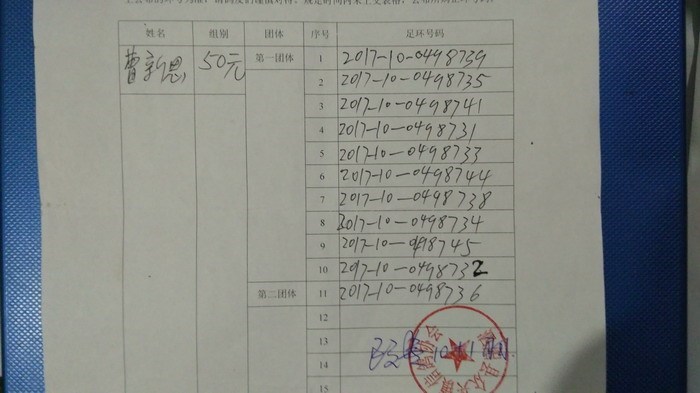 姓名 组别 团体 序号 足环号码
曹新恩 50元 第一团体 1 2017-10-0498739
2 2017-10-0498735
3 2017-10-0498741
4 2017-10-0498731
5 2017-10-0498733
6 2017-10-0498744
7 2017-10-0498738
8 2017-10-0498734
9 2017-10-0498745
10 2017-10-0498732
第二团体 11 2017-10-0498736
12
13
14
15